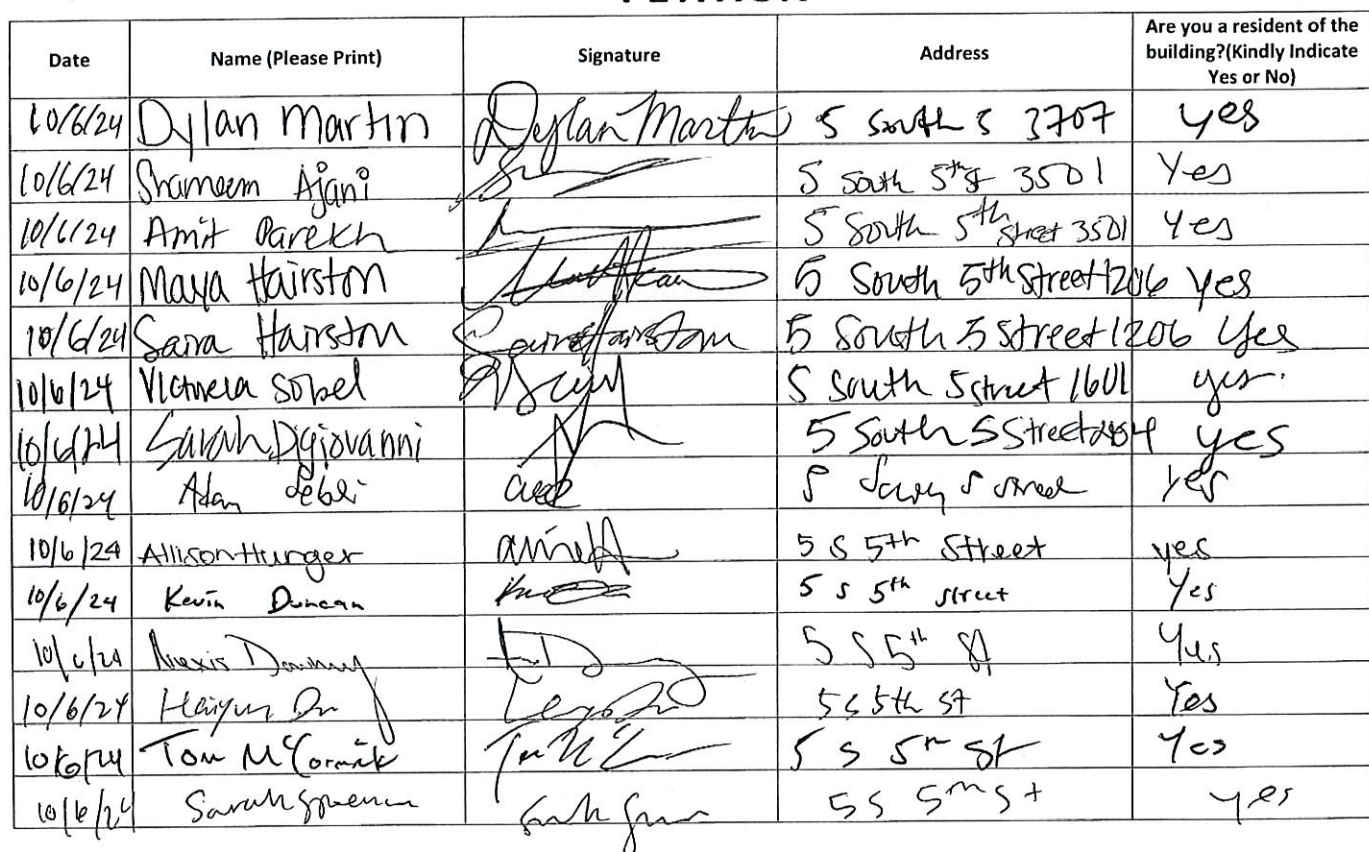 Date Name (Please Print) Signature Address Are you a resident of the building?(Kindly Indicate Yes or No)
10/6/24 Dylan Martin Dylan Martin 5 South 5 3707 yes
10/6/24 Shameem Ajani 5 South 5th St 3501 Yes
10/6/24 Amit Parekh 5 South 5th Street 3501 Yes
10/6/24 Maya Hairston 5 South 5th Street 1206 Yes
10/6/24 Saira Hairston Saira Hairston 5 South 5 Street 1206 Yes
10/6/24 Sobel 5 South 5 Street 1601 yes.
10/6/24 Sarah Digiovanni 5 South 5 Street yes
10/6/24 Adam 5 yes
10/6/24 Allison Hunger 5 S 5th Street yes
10/6/24 Kevin Duncan 5 S 5th Street Yes
10/6/24 Alexis 5 S 5th St Yes
10/6/24 5 S 5th St Yes
10/6/24 Tom McCormick 5 S 5th St Yes
10/6/24 Sarah 5 S 5th St yes